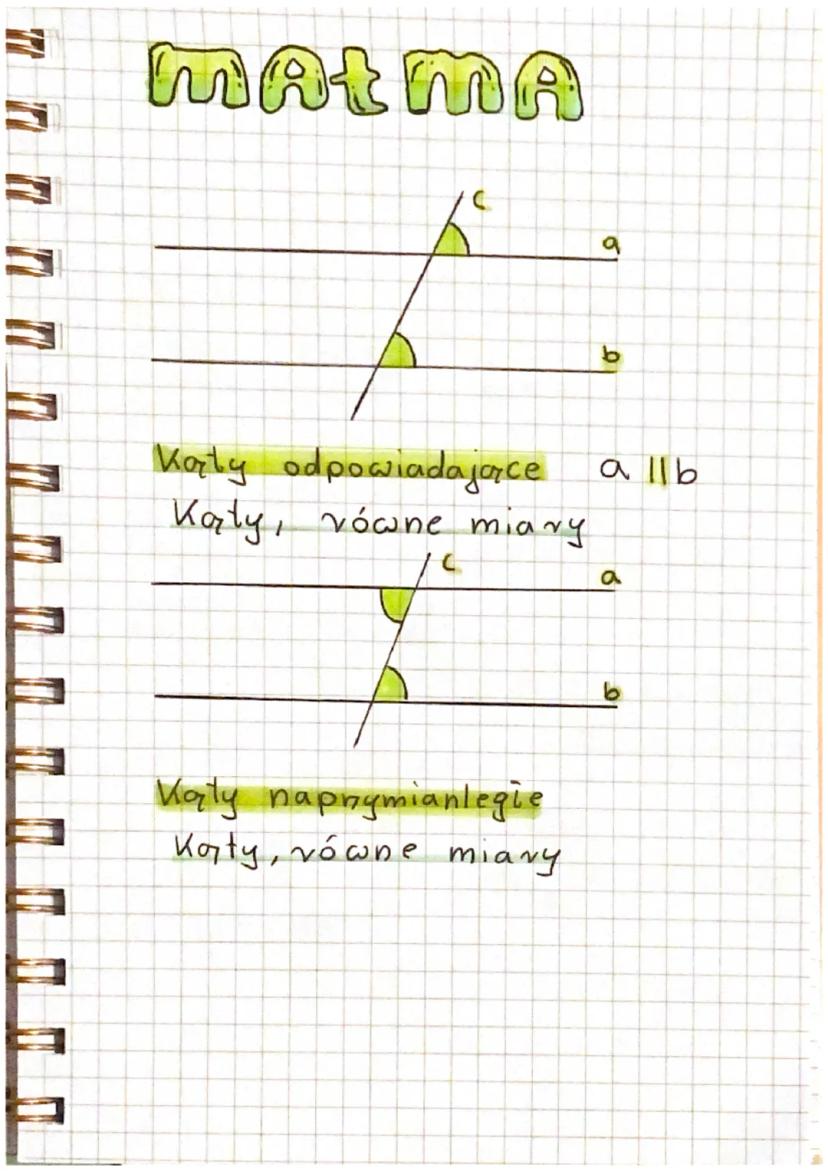 MAtMA
c
a
b
Kąty odpowiadające a || b
Kąty, równe miary
c
a
b
Kąty naprzymianległe
Kąty, równe miary